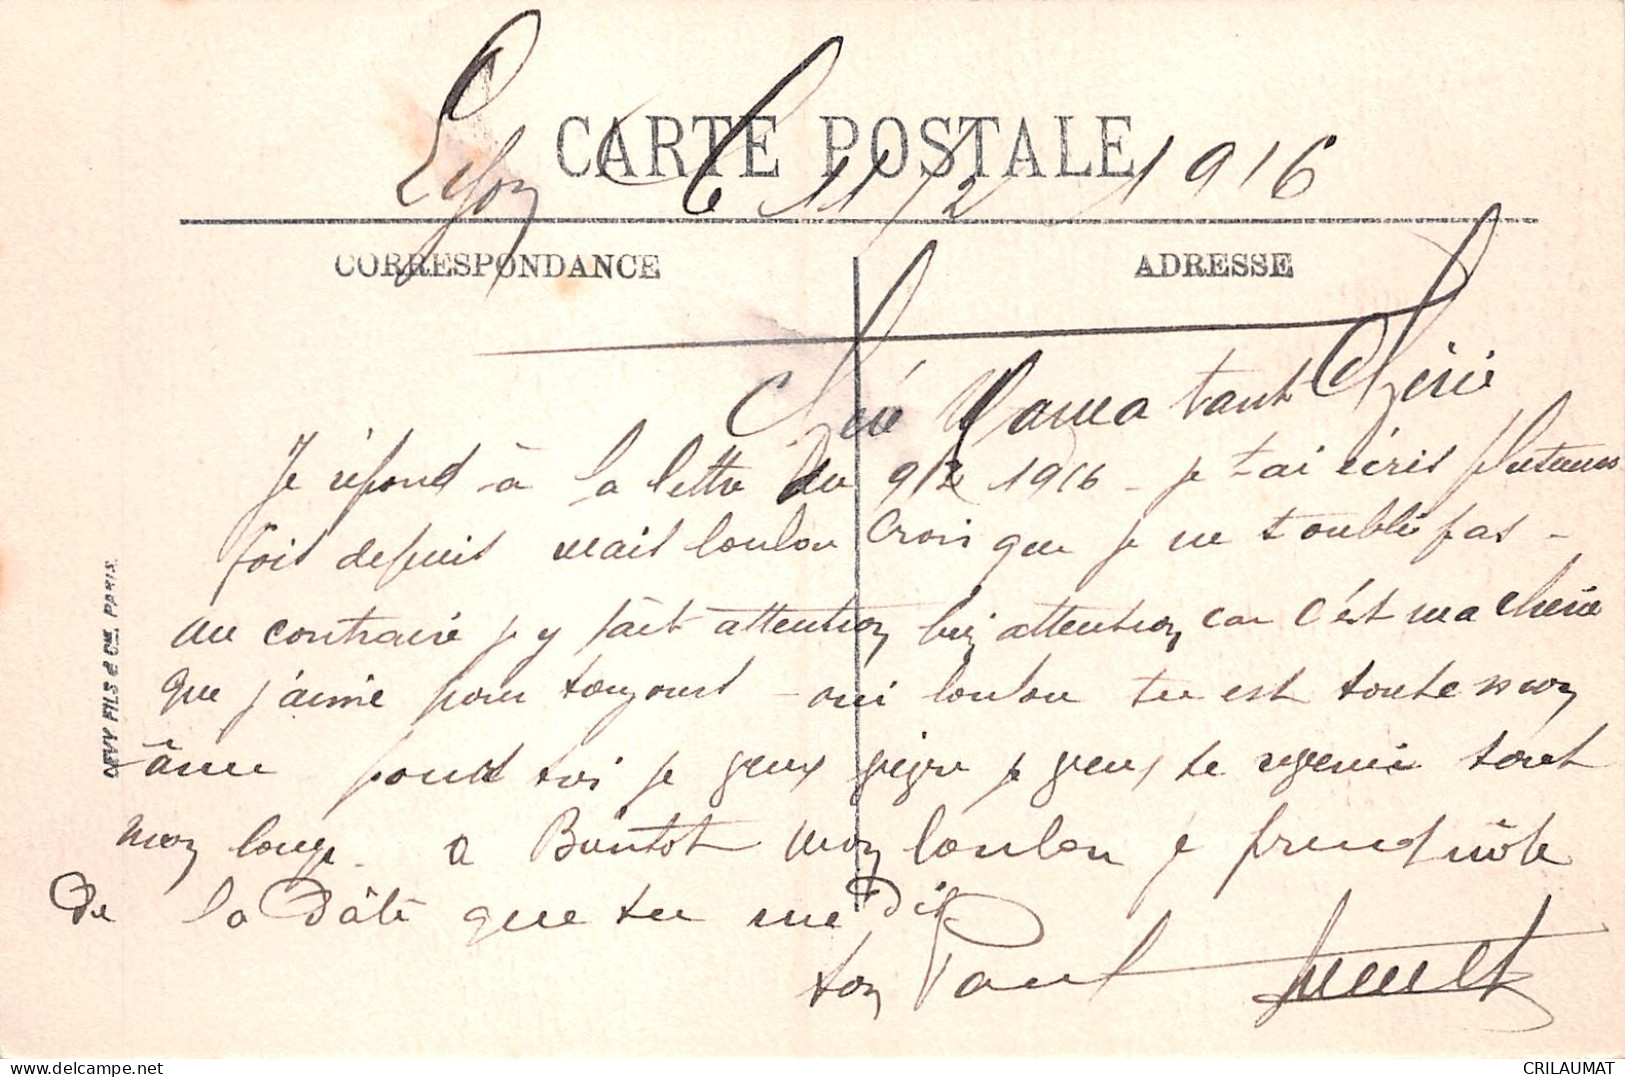 Lyon le 11/2 1916
CARTE POSTALE
CORRESPONDANCE
ADRESSE
Maria tant Chérie
Je répond à ta lettre du 9/2 1916 - je t'ai écris plusieurs
fois depuis mais loulou crois que je ne t'oublie pas -
au contraire j y fait attention bien attention car c'est ma cherie
que j'aime pour toujours - oui loulou tu est toute mon
âme pour toi je veux vivre je veux te revenir tout
mon loup. a Bientot mon loulou je prend nôte
De la Dâte que tu me Dis
ton Paul
DEVY FILS & CIE. PARIS.
delcampe.net
CRILAUMAT